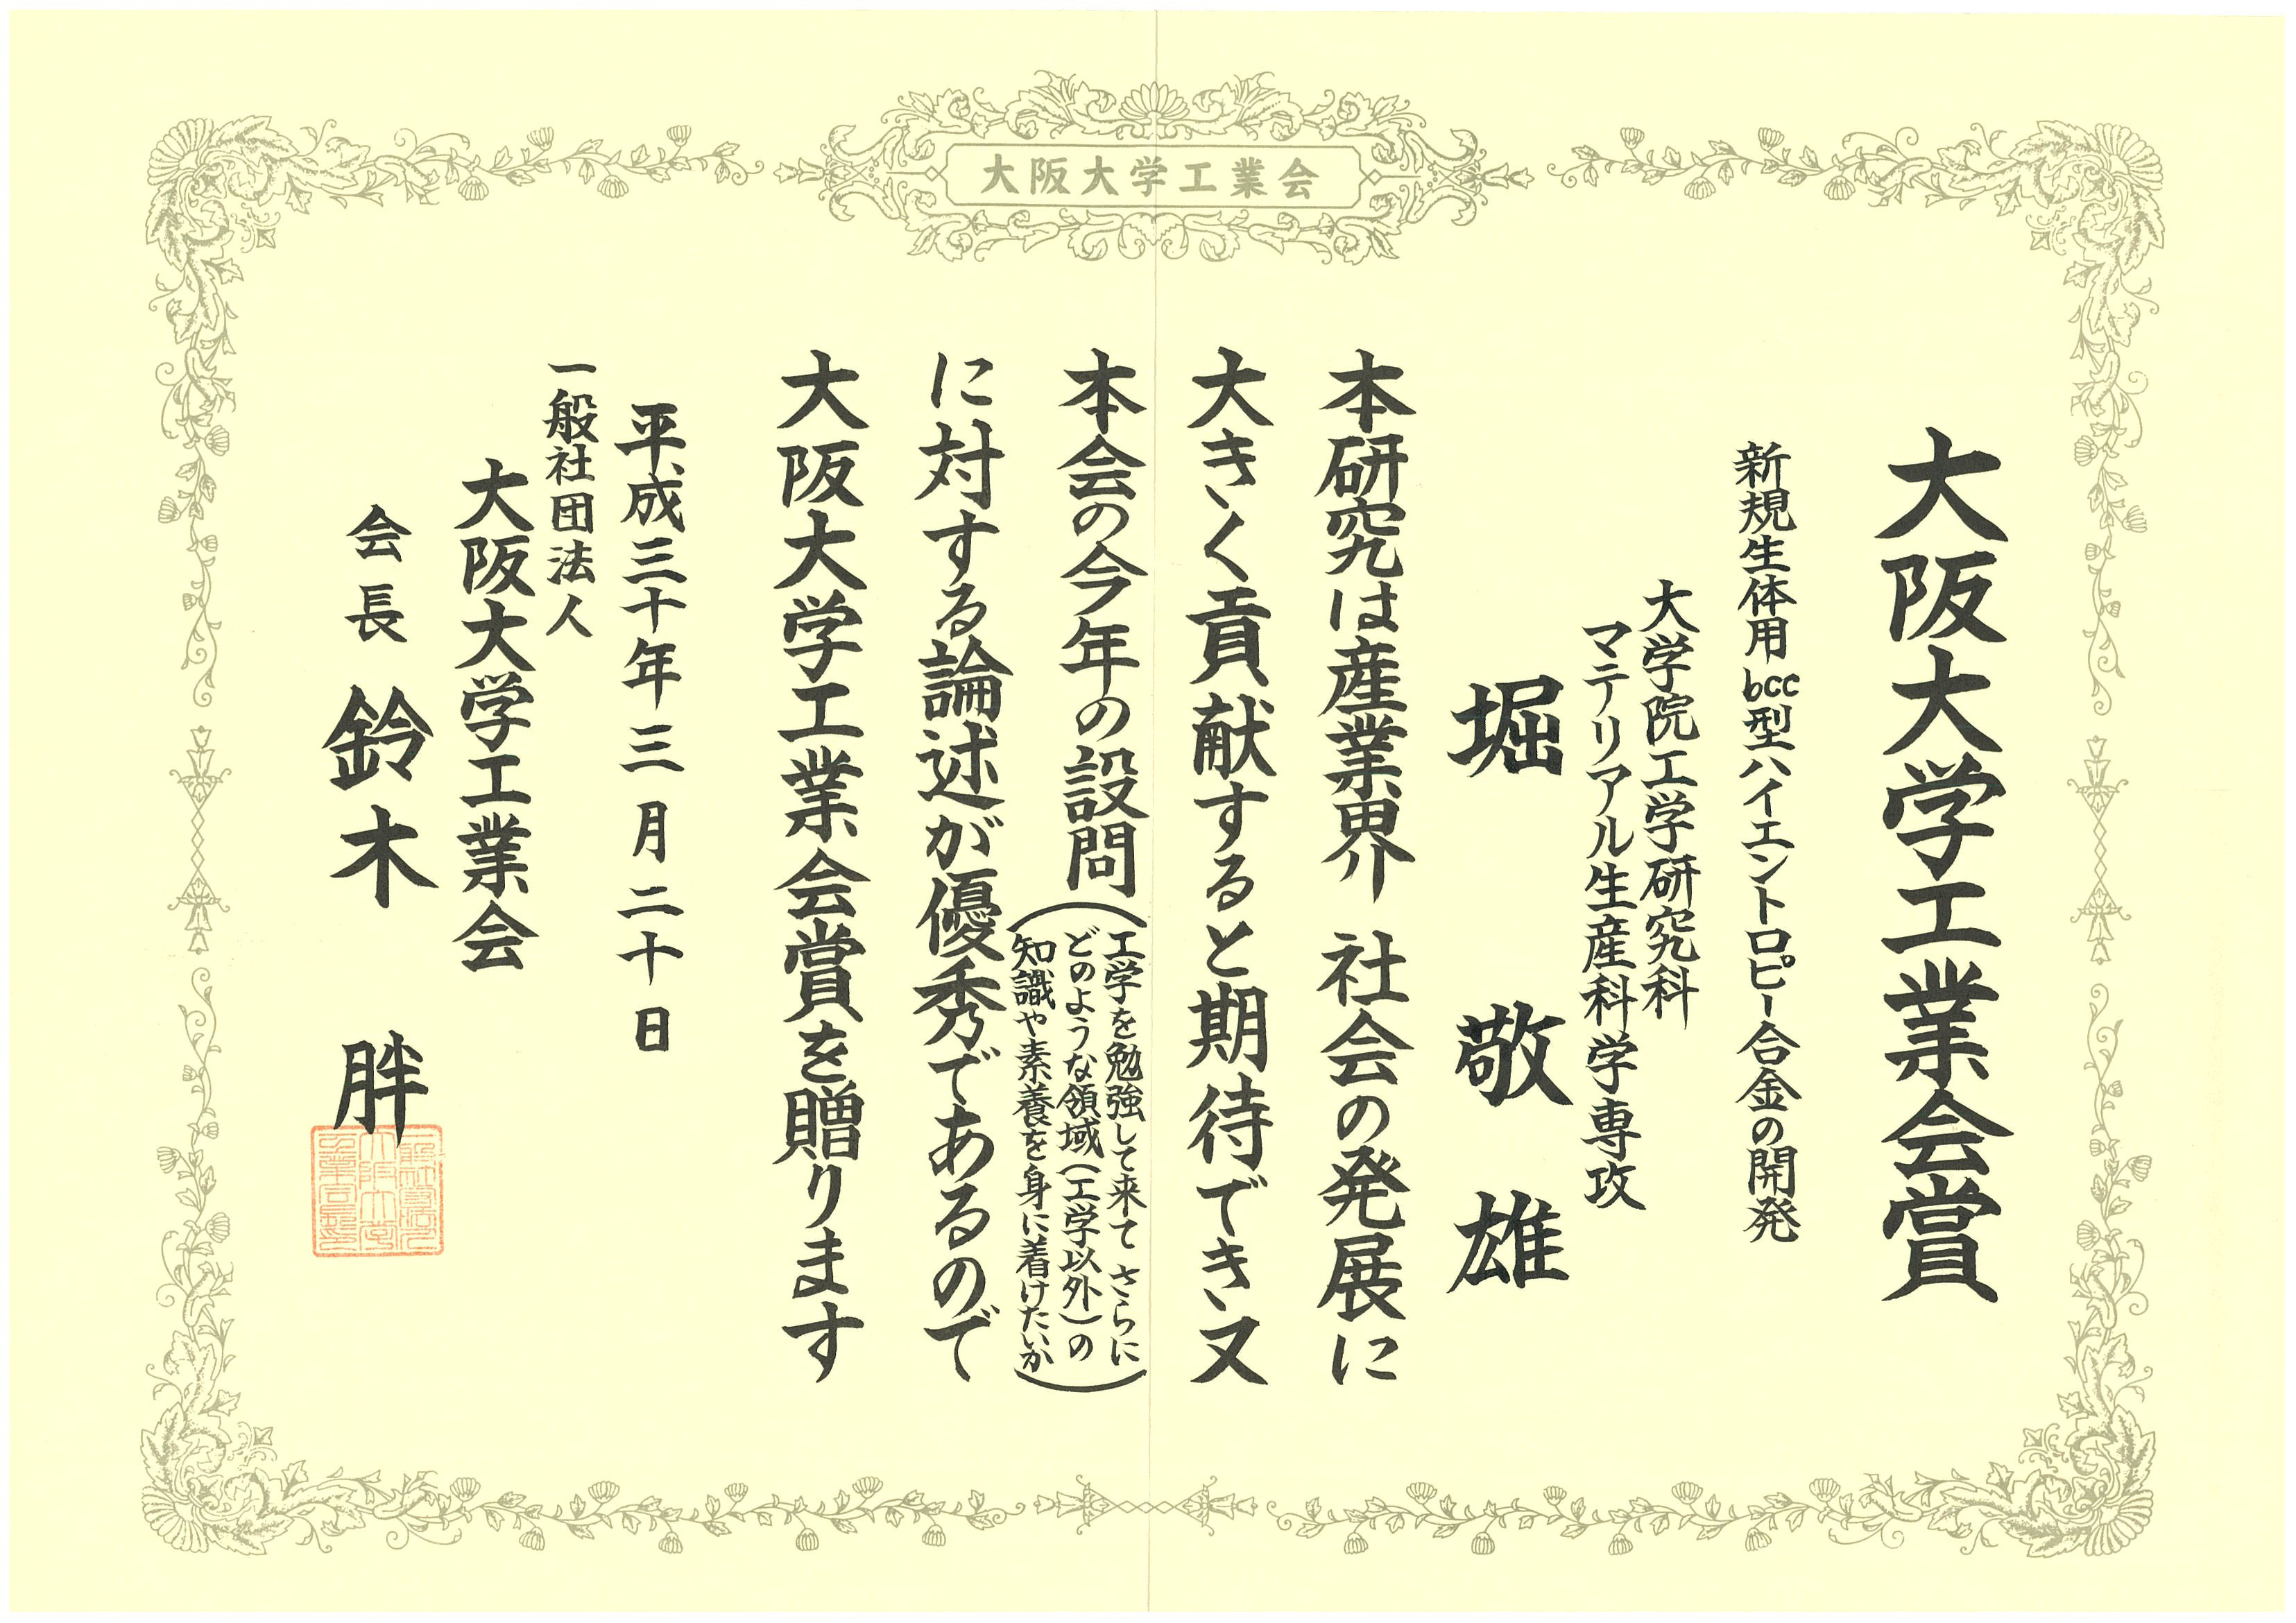 大阪大学工業会
大阪大学工業会賞
新規生体用bcc型ハイエントロピー合金の開発
大学院工学研究科
マテリアル生産科学専攻
堀 敬雄
本研究は産業界 社会の発展に
大きく貢献すると期待でき又
本会の今年の設問
(工学を勉強して来て さらに
どのような領域(工学以外)の
知識や素養を身に着けたいか)
に対する論述が優秀であるので
大阪大学工業会賞を贈ります
平成三十年三月二十日
一般社団法人
大阪大学工業会
会長 鈴木 胖